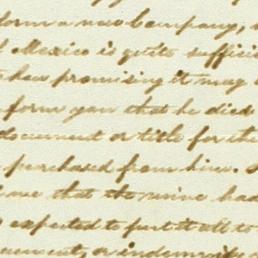 form a new Company, 
Mexico is quite suffici
promising it may
form you that he died
document or title for the
purchased from him.
me that the mine had
expected to put it all to
or indemnity